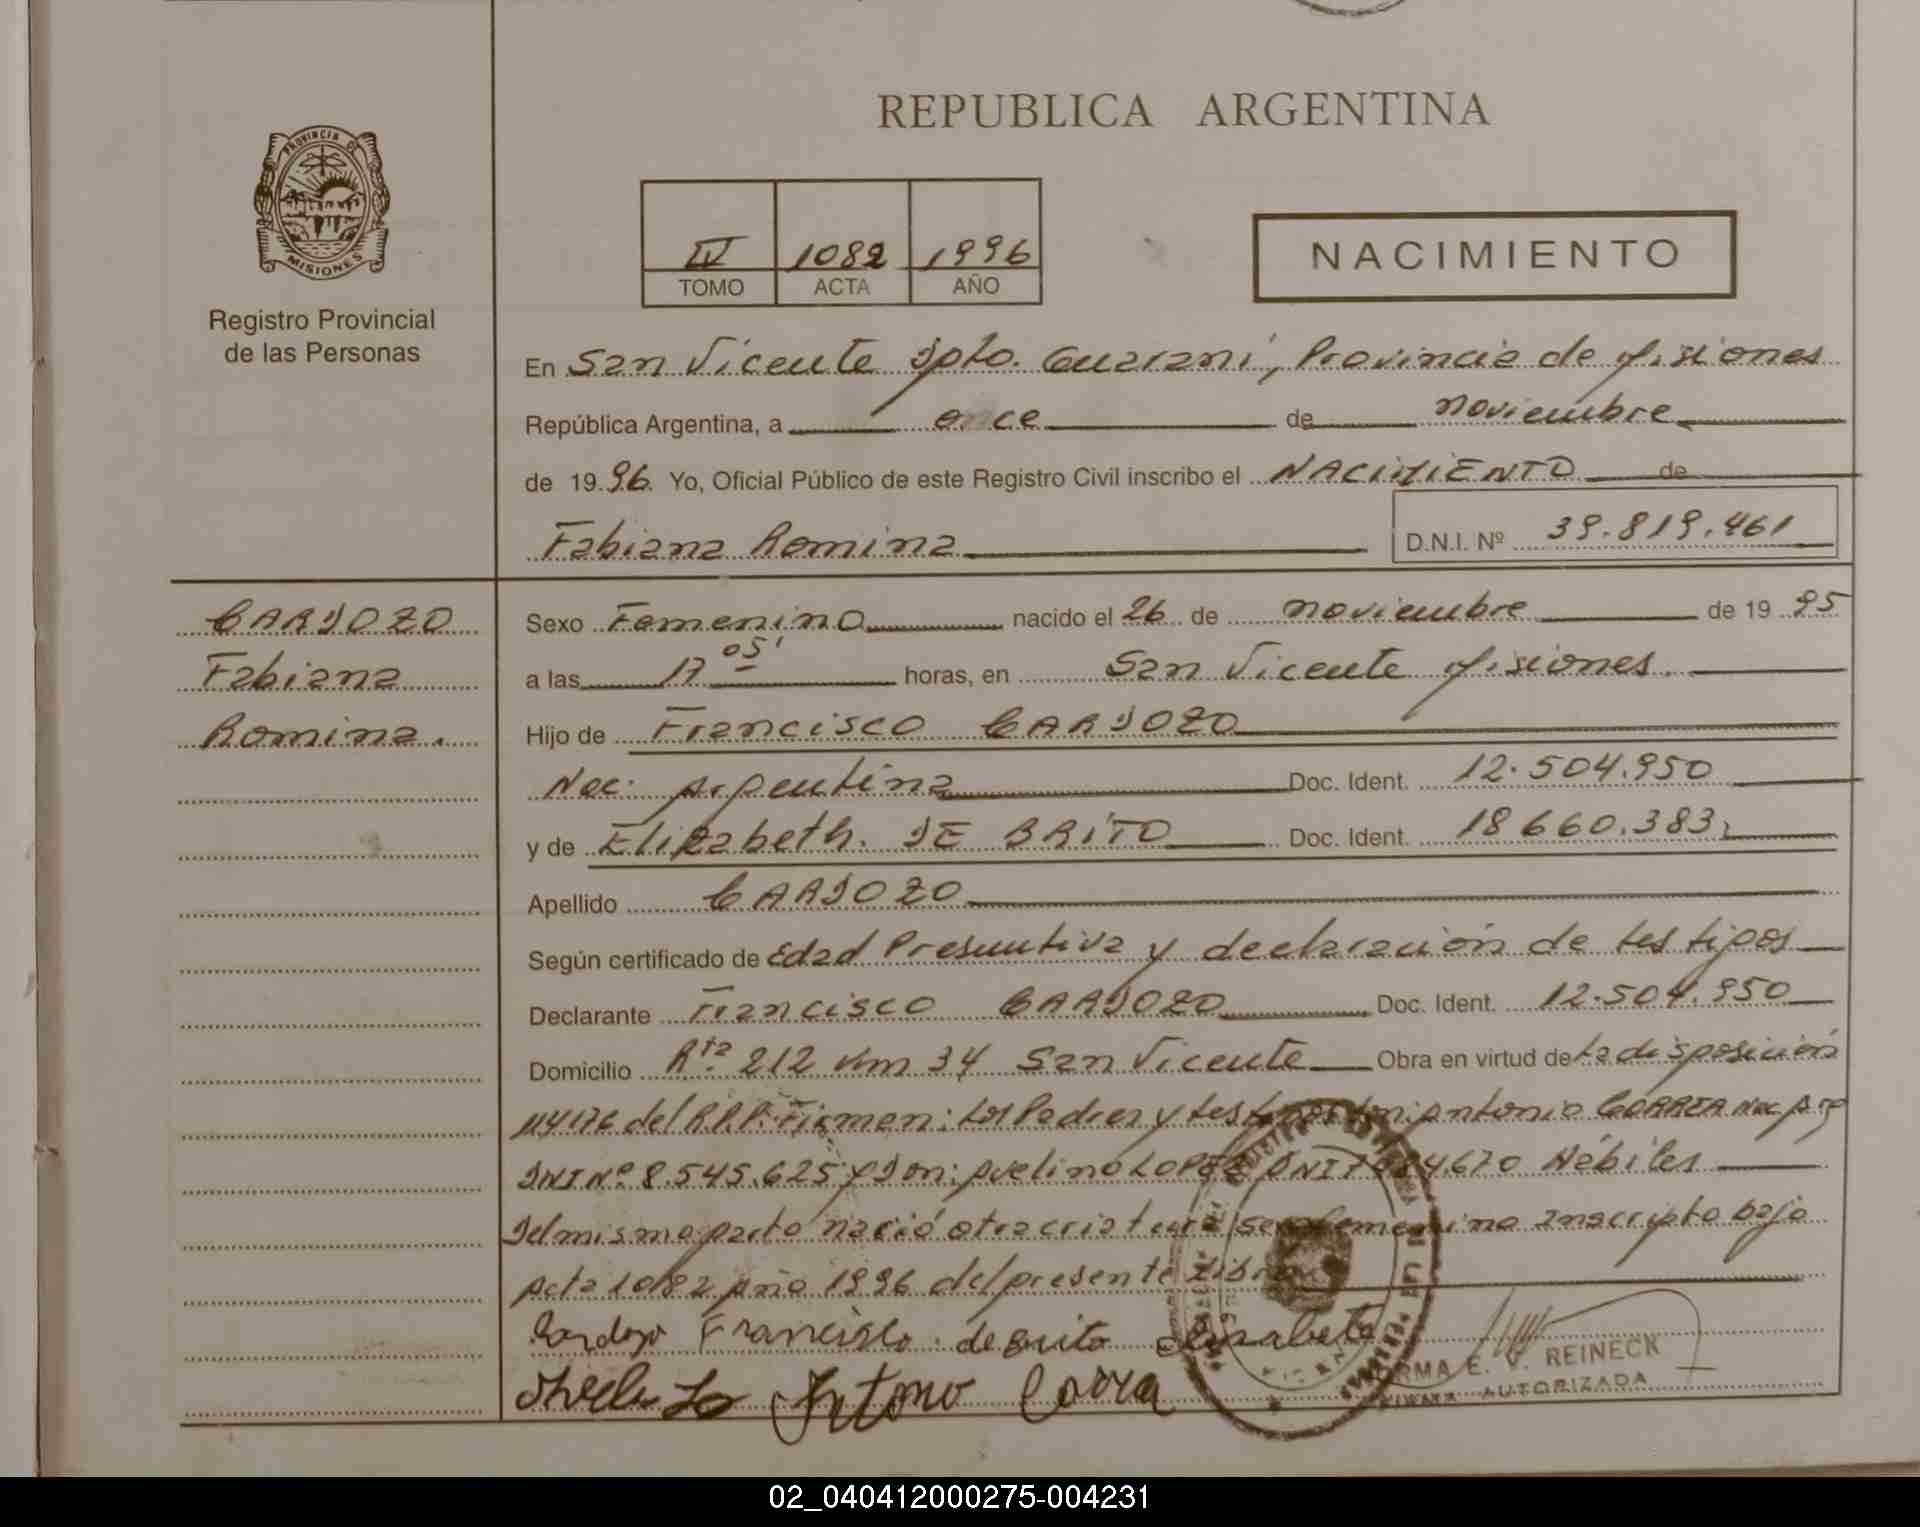 REPUBLICA ARGENTINA
PROVINCIA DE
MISIONES
Registro Provincial
de las Personas
IV 1082 1996
TOMO ACTA AÑO
NACIMIENTO
En San Vicente Dpto. Guaraní, Provincia de Misiones
República Argentina, a once de noviembre
de 19 96. Yo, Oficial Público de este Registro Civil inscribo el NACIMIENTO de
Fabiana Romina D.N.I. Nº 39.819.461
CARDOZO
Fabiana
Romina.
Sexo Femenino nacido el 26 de noviembre de 19 95
a las 17 05' horas, en San Vicente Misiones.
Hijo de Francisco CARDOZO
Nac. Argentina Doc. Ident. 12.504.950
y de Elizabeth. DE BRITO Doc. Ident. 18660.383
Apellido CARDOZO
Según certificado de Edad Presuntiva y declaración de testigos
Declarante Francisco CARDOZO Doc. Ident. 12.504.950
Domicilio Rta. 212 Km 34 San Vicente Obra en virtud de La disposición
114/96 del R.P.P. Firman: Los Padres y testigos Don: Antonio CORREA Nac Arg
DNI Nº 8.545.625 y Don: Avelino LOPEZ DNI 4.670 Hébiles
Del mismo parto nació otra criatura sexo femenino inscripto bajo
Acta 1082 Año 1996 del presente Libro
Cardozo Francisco. de Brito Elisabete
Antonio Correa
E. V. REINECK
AUTORIZADA
02_040412000275-004231